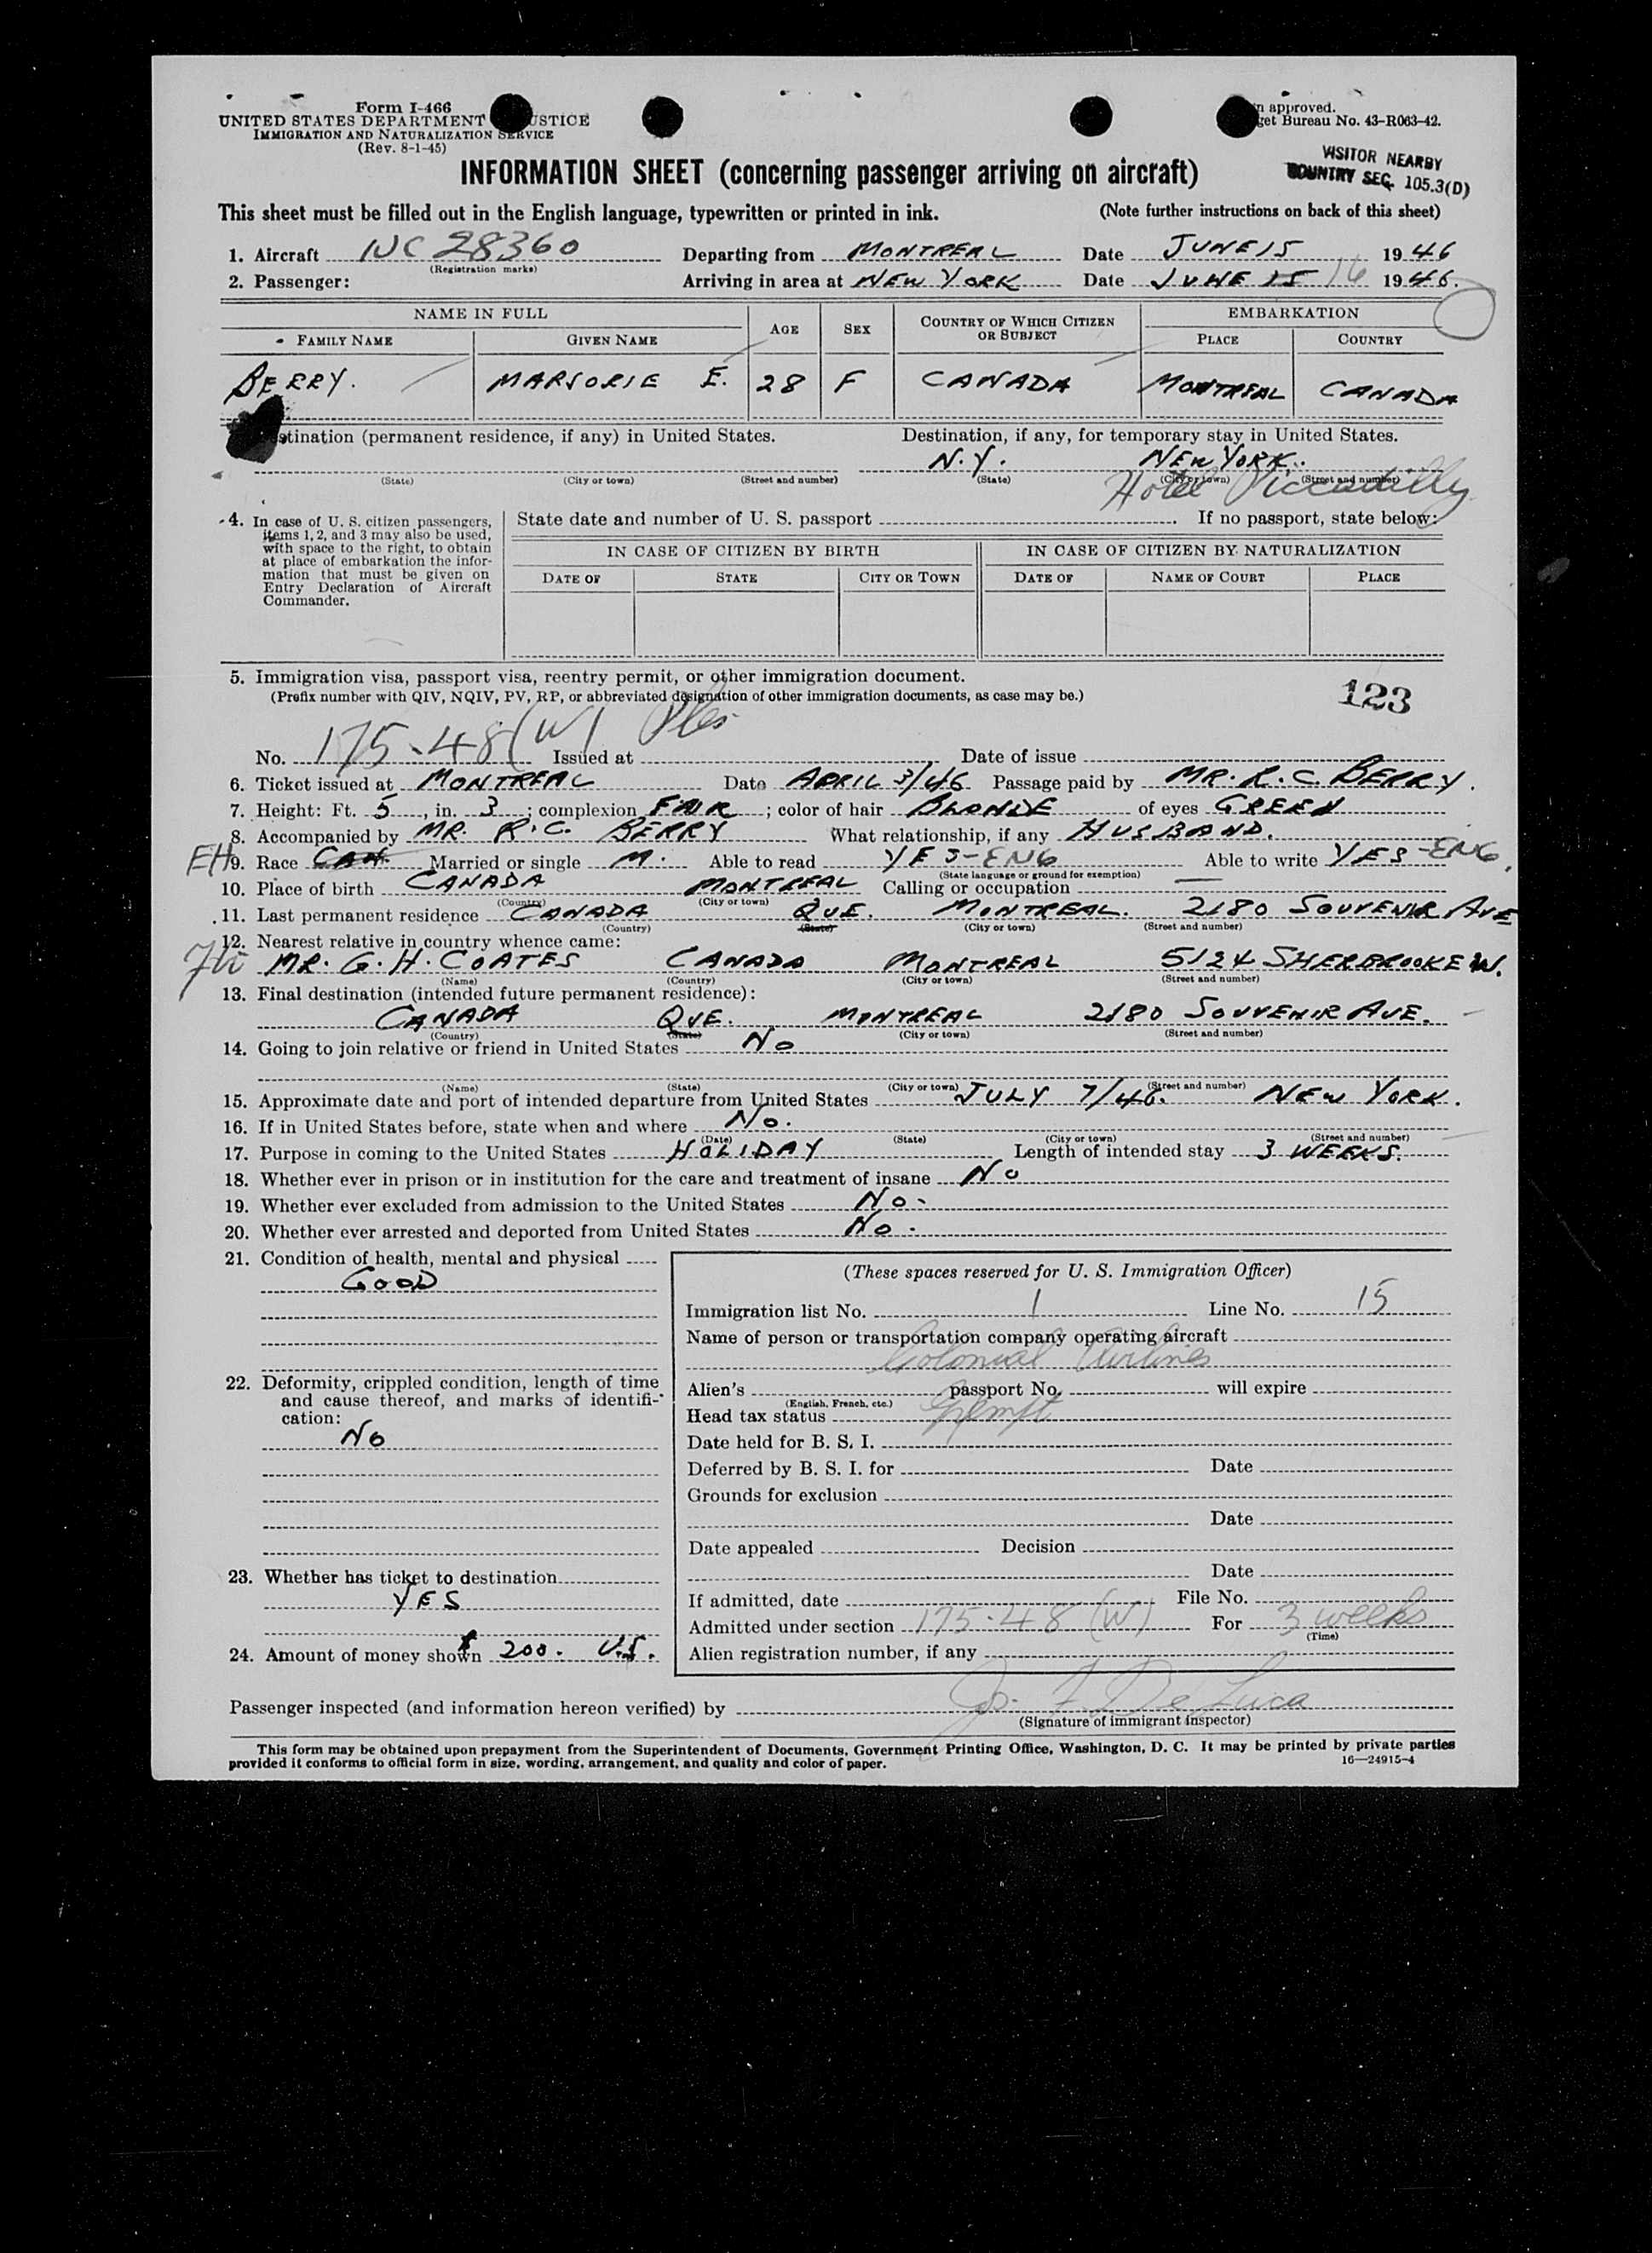 Form I-466
UNITED STATES DEPARTMENT USTICE
IMMIGRATION AND NATURALIZATION SERVICE
(Rev. 8-1-45)
n approved.
get Bureau No. 43-R063-42.
VISITOR NEARBY
COUNTRY SEC. 105.3(D)
INFORMATION SHEET (concerning passenger arriving on aircraft)
This sheet must be filled out in the English language, typewritten or printed in ink. (Note further instructions on back of this sheet)
1. Aircraft NC 28360 Departing from MONTREAL Date JUNE 15 1946
(Registration marks)
2. Passenger: Arriving in area at NEW YORK Date JUNE 15 16 1946.
NAME IN FULL AGE SEX COUNTRY OF WHICH CITIZEN OR SUBJECT EMBARKATION
FAMILY NAME GIVEN NAME PLACE COUNTRY
BERRY. MARJORIE E. 28 F CANADA MONTREAL CANADA
stination (permanent residence, if any) in United States. Destination, if any, for temporary stay in United States.
N.Y. NEW YORK.
(State) (City or town) (Street and number) (State) (City or town) (Street and number)
Hotel Piccadilly
4. In case of U. S. citizen passengers, items 1, 2, and 3 may also be used, with space to the right, to obtain at place of embarkation the information that must be given on Entry Declaration of Aircraft Commander.
State date and number of U. S. passport . If no passport, state below:
IN CASE OF CITIZEN BY BIRTH IN CASE OF CITIZEN BY NATURALIZATION
DATE OF STATE CITY OR TOWN DATE OF NAME OF COURT PLACE
5. Immigration visa, passport visa, reentry permit, or other immigration document.
(Prefix number with QIV, NQIV, PV, RP, or abbreviated designation of other immigration documents, as case may be.)
123
No. 175.48 (W) Issued at Date of issue
6. Ticket issued at MONTREAL Date APRIL 3/46 Passage paid by MR. R.C. BERRY.
7. Height: Ft. 5, in. 3; complexion FAIR; color of hair BLONDE of eyes GREEN
8. Accompanied by MR. R.C. BERRY What relationship, if any HUSBAND.
EH 9. Race CAN. Married or single M. Able to read YES-ENG Able to write YES-ENG.
(State language or ground for exemption)
10. Place of birth CANADA MONTREAL Calling or occupation —
(Country) (City or town)
11. Last permanent residence CANADA QUE. MONTREAL. 2180 SOUVENIR AVE
(Country) (State) (City or town) (Street and number)
12. Nearest relative in country whence came:
MR. G.H. COATES CANADA MONTREAL 5124 SHERBROOKE W.
(Name) (Country) (City or town) (Street and number)
13. Final destination (intended future permanent residence):
CANADA QUE. MONTREAL 2180 SOUVENIR AVE.
(Country) (State) (City or town) (Street and number)
14. Going to join relative or friend in United States NO
(Name) (State) (City or town) (Street and number)
15. Approximate date and port of intended departure from United States JULY 7/46. NEW YORK.
16. If in United States before, state when and where NO.
(Date) (State) (City or town) (Street and number)
17. Purpose in coming to the United States HOLIDAY Length of intended stay 3 WEEKS.
18. Whether ever in prison or in institution for the care and treatment of insane NO
19. Whether ever excluded from admission to the United States NO.
20. Whether ever arrested and deported from United States NO.
21. Condition of health, mental and physical
GOOD
22. Deformity, crippled condition, length of time and cause thereof, and marks of identification:
NO
23. Whether has ticket to destination
YES
24. Amount of money shown $ 200. U.S.
(These spaces reserved for U. S. Immigration Officer)
Immigration list No. 1 Line No. 15
Name of person or transportation company operating aircraft
Colonial Airlines
Alien's passport No. will expire
(English, French, etc.)
Head tax status Exempt
Date held for B. S. I.
Deferred by B. S. I. for Date
Grounds for exclusion
Date
Date appealed Decision
Date
If admitted, date File No.
Admitted under section 175.48 (W) For 3 weeks
(Time)
Alien registration number, if any
Passenger inspected (and information hereon verified) by Jos. F. De Luca
(Signature of immigrant inspector)
This form may be obtained upon prepayment from the Superintendent of Documents, Government Printing Office, Washington, D. C. It may be printed by private parties
provided it conforms to official form in size, wording, arrangement, and quality and color of paper. 16—24915-4